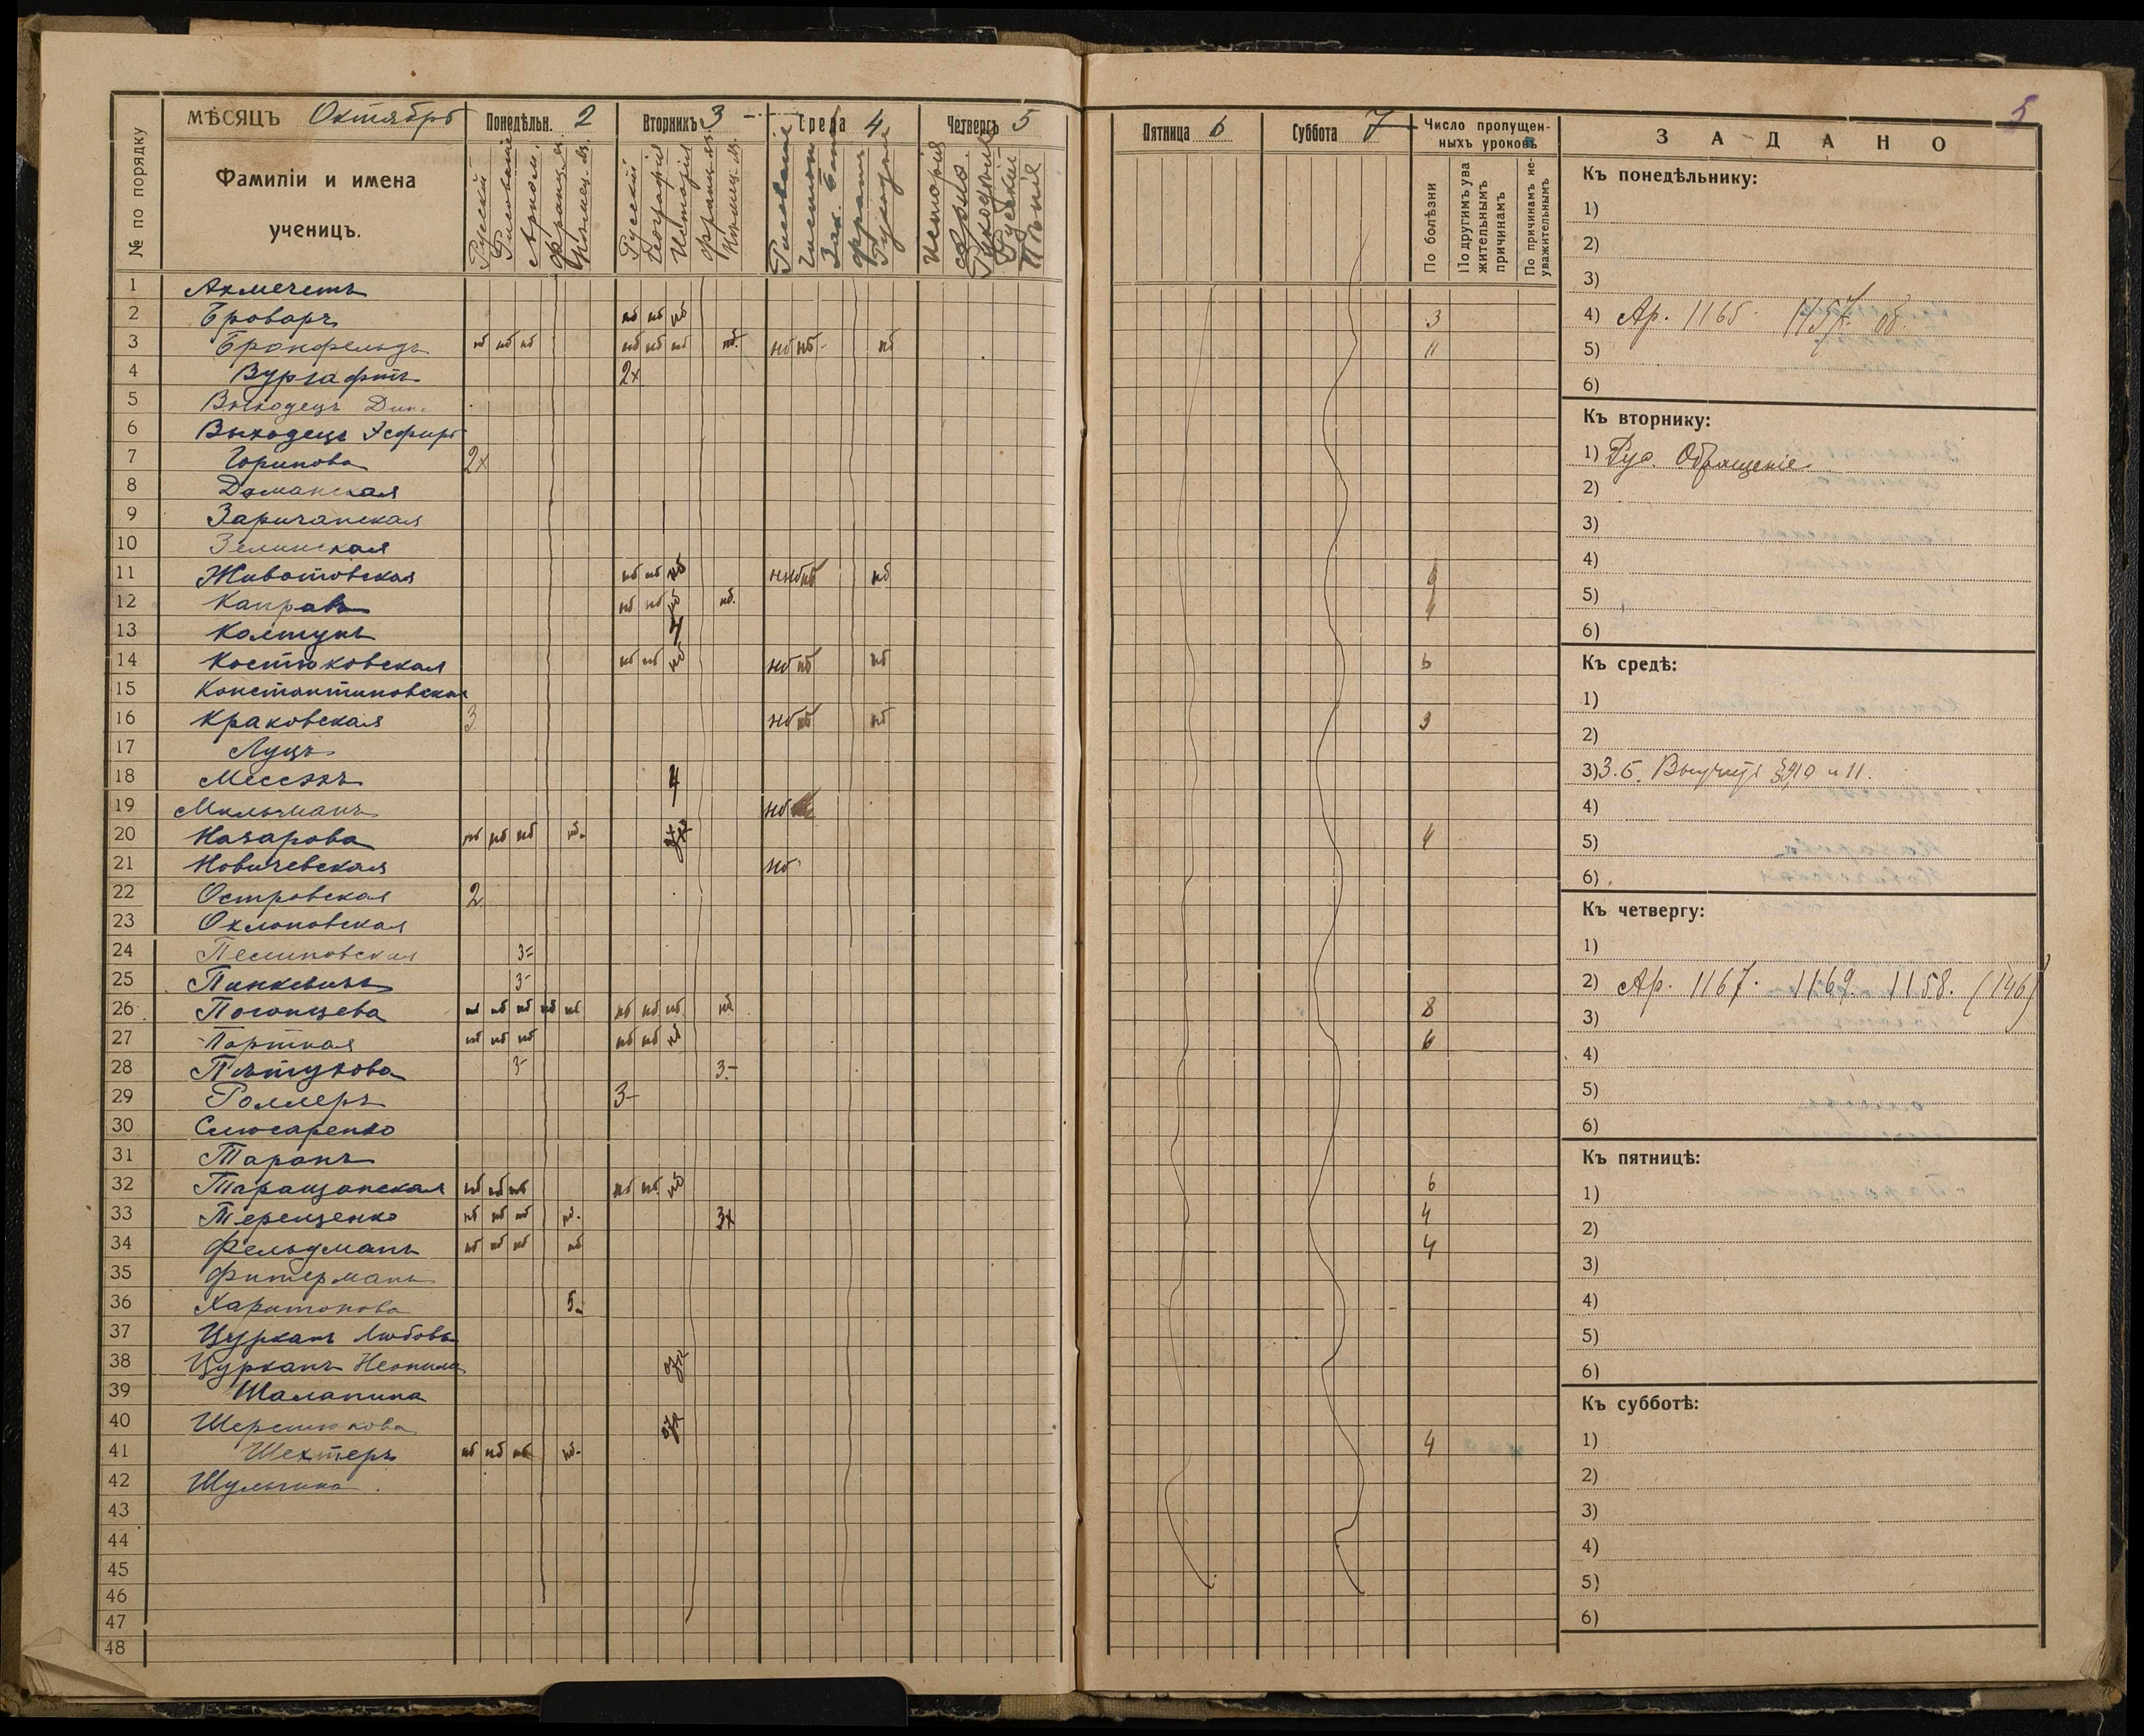 5
№ по порядку
МѢСЯЦЪ Октябрь
Фамиліи и имена
ученицъ.
Понедѣльн. 2
Вторникъ 3
Среда 4
Четвергъ 5
Русскій
Рисованіе
Арифм.
Франц. яз.
Нѣмец. яз.
Русскій
Географія
Исторія
Франц. яз.
Нѣмец. яз.
Рисованіе
Исторія
Рукодѣліе
Русскій
Пѣніе
1 Ахмечетъ
2 Броваръ нб нб нб 3
3 Бронфельдъ нб нб нб нб нб нб нб. нб нб нб 11
4 Вургафтъ 2х
5 Выходецъ Дин.
6 Выходецъ Эсфирь
7 Горинова 2х
8 Доманская
9 Заричанская
10 Зелинская
11 Животовская нб нб нб нб нб нб
12 Капровъ нб нб нб нб. 4
13 Колтунъ 4
14 Костюковская нб нб нб нб нб нб 6
15 Константиновская
16 Краковская 3 нб нб нб 3
17 Луцъ
18 Мессэкъ 4
19 Мильчманъ нб
20 Назарова нб нб нб нб. 4
21 Новичевская нб
22 Островская 2
23 Охлоповская
24 Песиповская 3=
25 Пинкевичъ 3-
26 Погонцева нб нб нб нб нб нб нб нб нб 8
27 Портная нб нб нб нб нб нб 6
28 Пѣтухова 3- 3-
29 Роллеръ 3-
30 Слюсаренко
31 Таранъ
32 Таращанская нб нб нб нб нб нб 6
33 Терещенко нб нб нб нб. 3х 4
34 Фельдманъ нб нб нб нб 4
35 Фитерманъ
36 Харитонова 5-
37 Цурканъ Любовь
38 Цурканъ Неонила
39 Шалапина
40 Шерстюкова
41 Шехтеръ нб нб нб нб. 4
42 Шульгина
43
44
45
46
47
48
Пятница 6
Суббота 7
Число пропущен-
ныхъ уроковъ
По болѣзни
По другимъ ува
жительнымъ
причинамъ
По причинамъ не-
уважительнымъ
ЗАДАНО
Къ понедѣльнику:
1)
2)
3)
4) Ар. 1165. 1157.
5)
6)
Къ вторнику:
1) Рус. Обращеніе.
2)
3)
4)
5)
6)
Къ средѣ:
1)
2)
3) З. Б. Выучить §§10 и 11.
4)
5)
6)
Къ четвергу:
1)
2) Ар. 1167. 1169. 1158. (146)
3)
4)
5)
6)
Къ пятницѣ:
1)
2)
3)
4)
5)
6)
Къ субботѣ:
1)
2)
3)
4)
5)
6)